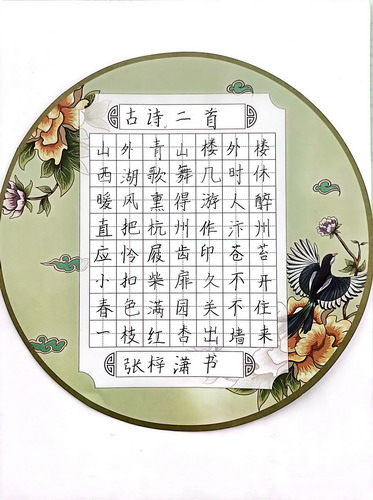 古诗二首
山外青山楼外楼
西湖歌舞几时休
暖风熏得游人醉
直把杭州作汴州
应怜屐齿印苍苔
小扣柴扉久不开
春色满园关不住
一枝红杏出墙来
张梓潇书